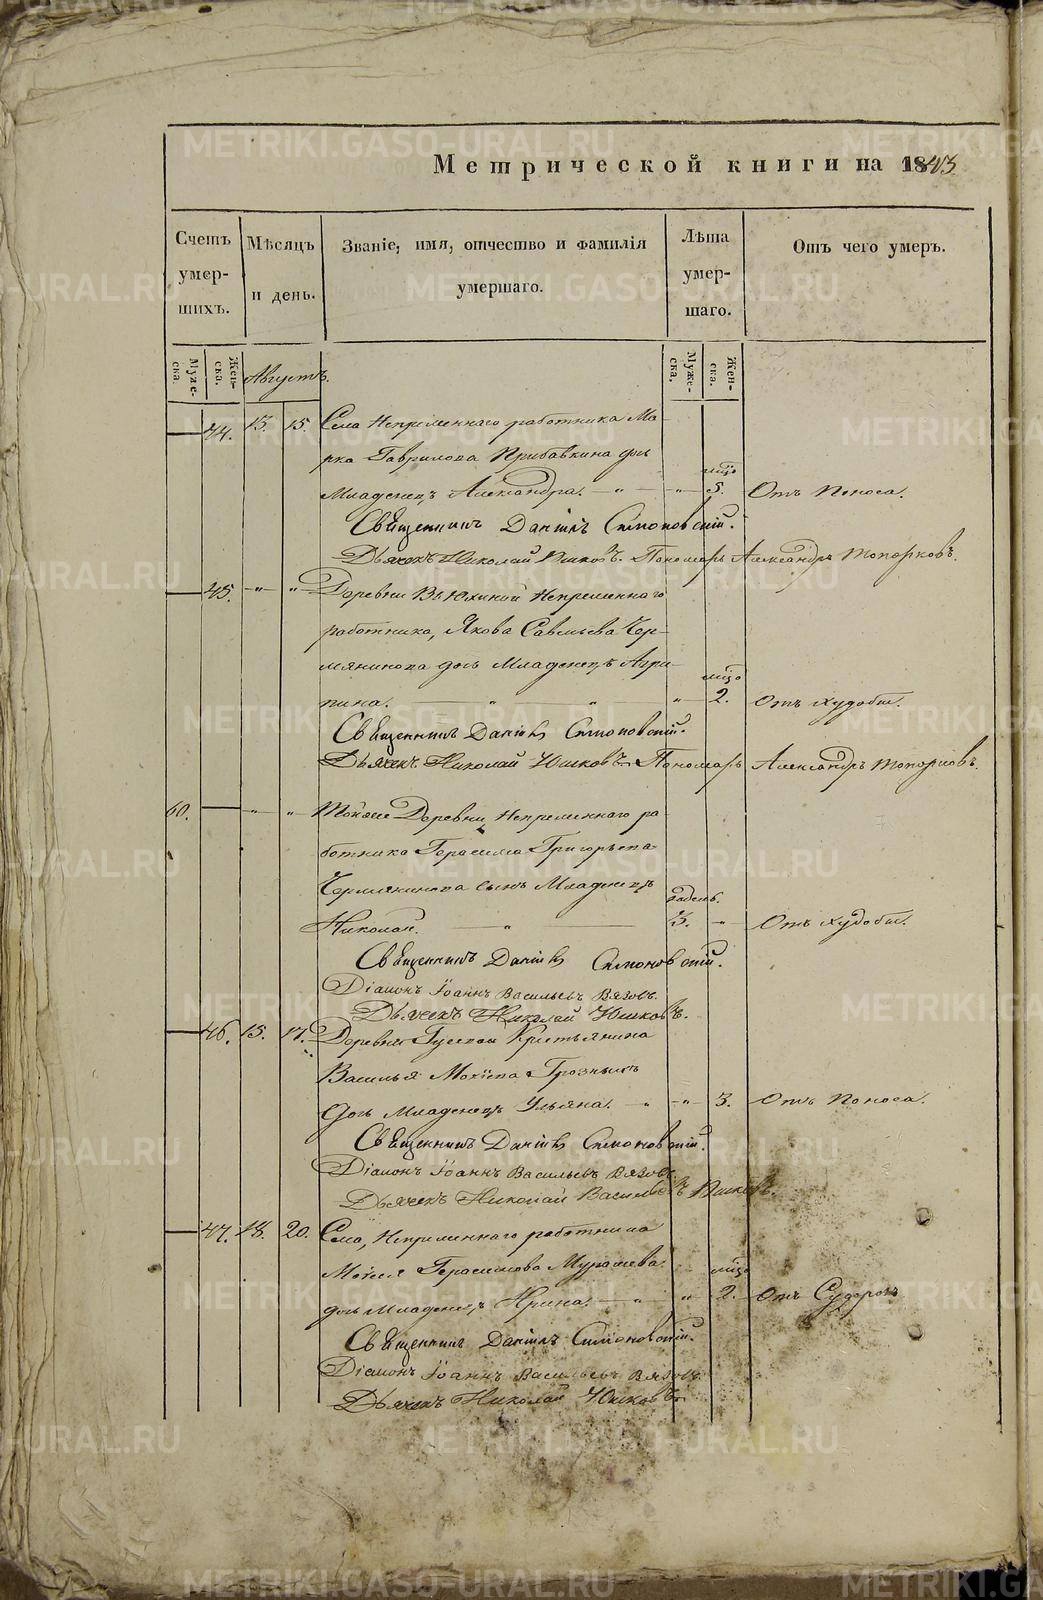 Метрической книги на 1843
Счетъ умер-шихъ.
Мѣсяцъ и день.
Званіе, имя, отчество и фамилія умершаго.
Лѣта умер-шаго.
Отъ чего умеръ.
Муже-ска. Жен-ска. Августъ. Муже-ска. Жен-ска.
44. 13. 15. Села Непременнаго работника Ма-
рка Гаврилова Прибавкина дочь
Младенецъ Александра. мцо 5. Отъ Поноса.
Священникъ Даніилъ Симоновскій.
Дьячекъ Николай Юшковъ. Пономарь Александръ Топорковъ.
45. " " Деревни Вьюхиной Непременнаго
работника, Якова Савельева Чер-
мянинова дочь Младенецъ Агри-
пина. " " " мцо 2. Отъ худобы.
Священникъ Даніилъ Симоновскій.
Дьячекъ Николай Юшковъ. Пономарь Александръ Топорковъ.
60. " " Тойже Деревни, Непременнаго ра-
ботника Герасима Григорьева
Чермянинова сынъ Младенецъ
Николай. " 3. " Отъ худобы.
Священникъ Даніилъ Симоновскій.
Діаконъ Іоаннъ Васильевъ Вязовъ.
Дьячекъ Николай Юшковъ.
46. 15. 17. Деревни Крестьянина
Василья Грозныхъ
дочь Младенецъ Ульяна. " " 3. Отъ Поноса.
Священникъ Даніилъ Симоновскій.
Діаконъ Іоаннъ Васильевъ Вязовъ.
Дьячекъ Николай Васильевъ Юшковъ.
47. 18. 20. Села, Непременнаго работника
Моисея Герасимова Мурашева
дочь Младенецъ Ирина. " " мцо 2. Отъ Судорогъ
Священникъ Даніилъ Симоновскій.
Діаконъ Іоаннъ Васильевъ Вязовъ.
Дьячекъ Николай Юшковъ.
METRIKI.GASO-URAL.RU